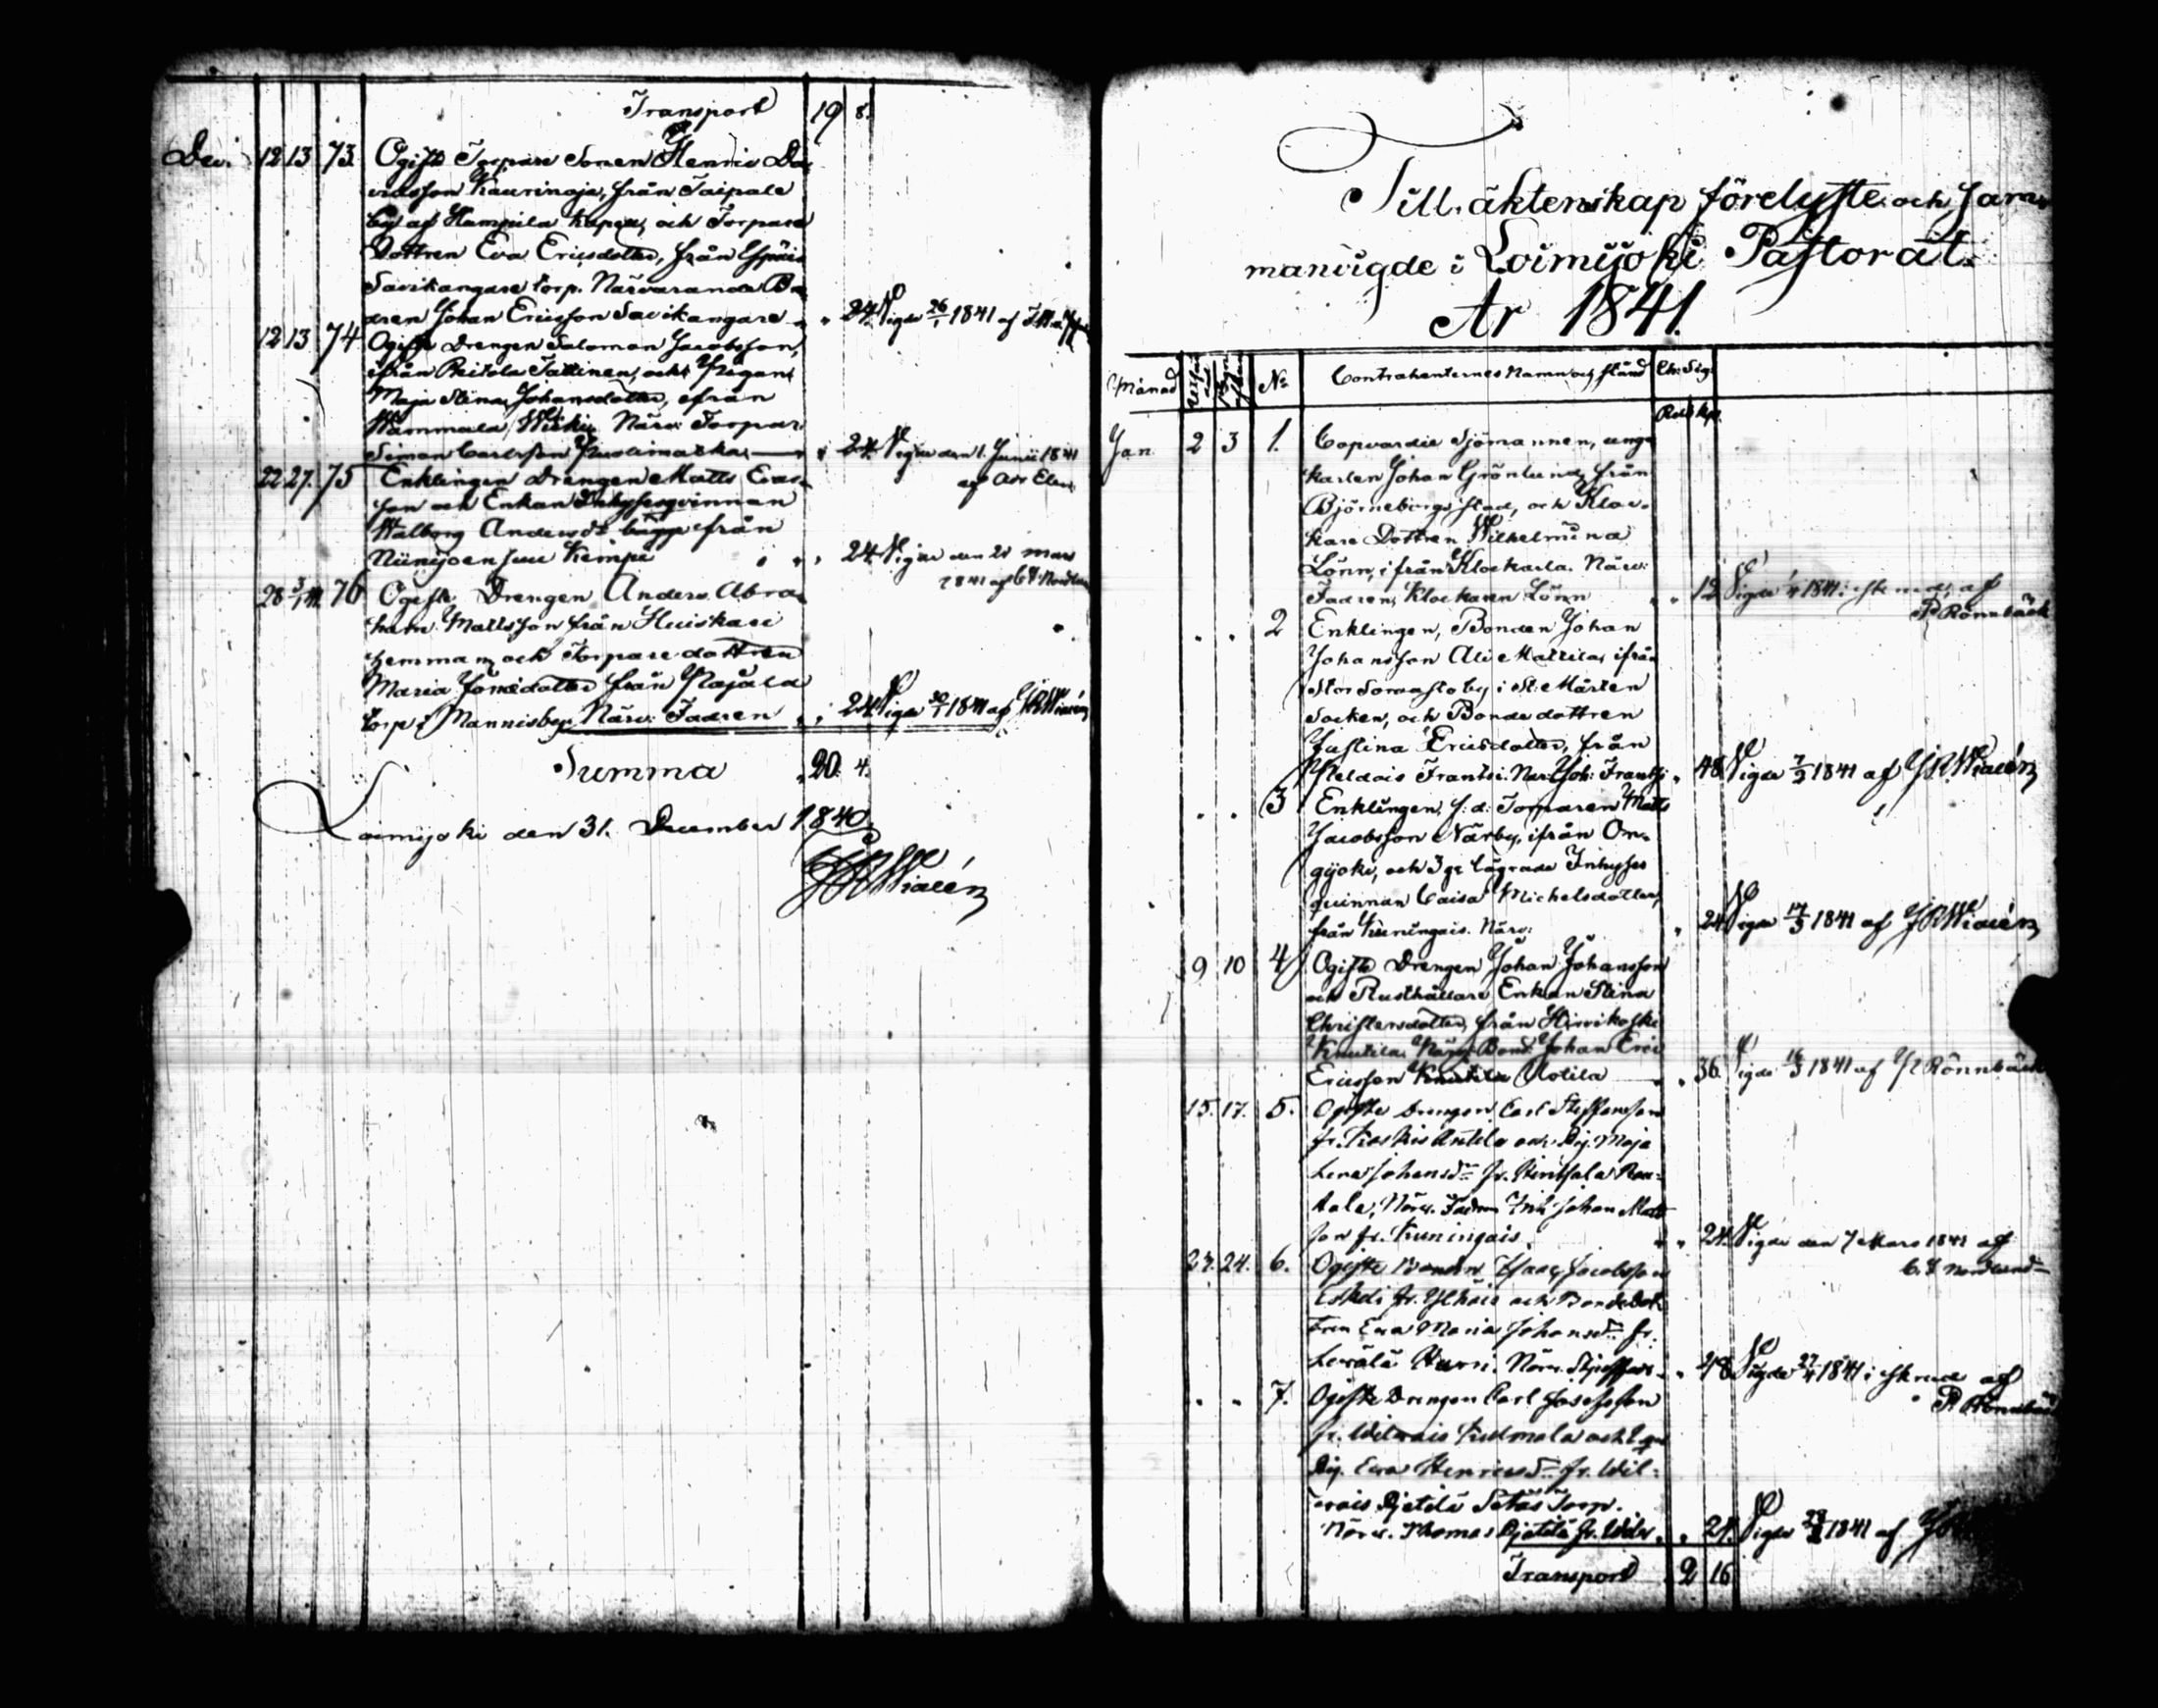 Transport 19 8.
Dec. 12 13 73 Ogifte Torpare Sonen Henric Da-
vidsson Kauринoja, från Taipale
by af Humpila kapell, och Torpare
Dottren Eva Ericsdotter, från Ypäis
Savikangare torp. Närvarande Bro-
dren Johan Ericsson Savikangare " 24. Vigde 26/1 1841 af
12 13 74 Ogifte Drengen Salomon Jacobsson,
ifrån Peitola Tattinen, och Pigan
Maja Stina Johansdotter, ifrån
Wammala Wirki. Närv: Torpar.
Simon Carlsson " 24. Vigde den 1. Junii 1841
af
22 27. 75 Enklingen Drengen Matts Erics-
son och Enkan Inhysesqvinnan
Walborg Andersdr bägge från
Niinijoensuu Kempi " 24. Vigde den 21 mars
1841 af C.F. Nordlund
28 3/1 41. 76 Ogifte Drengen Anders Abra-
ham Mattsson från Huiskari
hemman, och Torparedottren
Maria Jönsdotter från Ylöjälä
torp i Mannisby. Närv: Fadren " 24. Vigde 30/1 1841 af JRWialén
Summa 20. 4.
Loimijoki den 31. December 1840.
JRWialén
Till äktenskap förelyste och sam-
manvigde i Loimijoki Pastorat.
År 1841.
Månad No Contrahenternes Namn och stånd Chr. Sig:
Rub. Kop.
Jan. 2 3 1. Copvardie Sjömannen, unge
karlen Johan Grönlund, från
Björneborgs stad, och Kloc-
kare Dottren Wilhelmina
Lönn, ifrån Klockarla. Närv:
Fadren, Klockaren Lönn " 12 Vigde 1841: af
Rönnbäck
" " 2 Enklingen, Bonden Johan
Johansson Ali Mattila, ifrån
Stor Sorvasto by i St. Mårten
Socken, och Bonde dottren
Justina Ericsdotter, från
Peldois Frantsi. Närv. Joh: Frantsi " 48. Vigde 7/2 1841 af JRWialén
" " 3 Enklingen, f.d. Torparen Matts
Jacobsson Närby, ifrån Or-
gijoki, och 3 gr lägrade Inhyses
quinnan Caisa Michelsdotter,
från Kuningais. Närv: " 24 Vigde 14/3 1841 af JRWialén
9 10 4 Ogifte Drengen Johan Johansson
och Rusthållare Enkan Stina
Christersdotter, från Hirvikoski
Knutila. Närv. Bond. Johan Eric
Ericsson Uotila " 36. Vigde 16/3 1841 af Rönnbäck
15. 17. 5. Ogifte Drengen Carl Steffansson
fr. Koskis Anttila och Pig. Maja
Lena Johansdr fr. Hintsala Rau-
tala, Närv. Fadren Inh Johan Matts
son fr. Kuningais. " 24. Vigde den 7 Mars 1841 af
C.F. Nordlund
23. 24. 6. Ogifte Bonden Isaac Jacobsson
fr. Ylhäis och Bondedot-
tren Eva Maria Johansdr fr.
Levälä Hurri. Närv. Stjuffadr. " 48 Vigde 27/4 1841 af
Rönnbäck
" " 7. Ogifte Drengen Carl Josefsson
fr. Wilvais Kulmala och
Pig. Eva Henricsdr fr. Wil-
vais Pietilä Torp.
Närv. Thomas Pietilä fr. Wilv. " 24. Vigde 1841 af
Transport 2 16